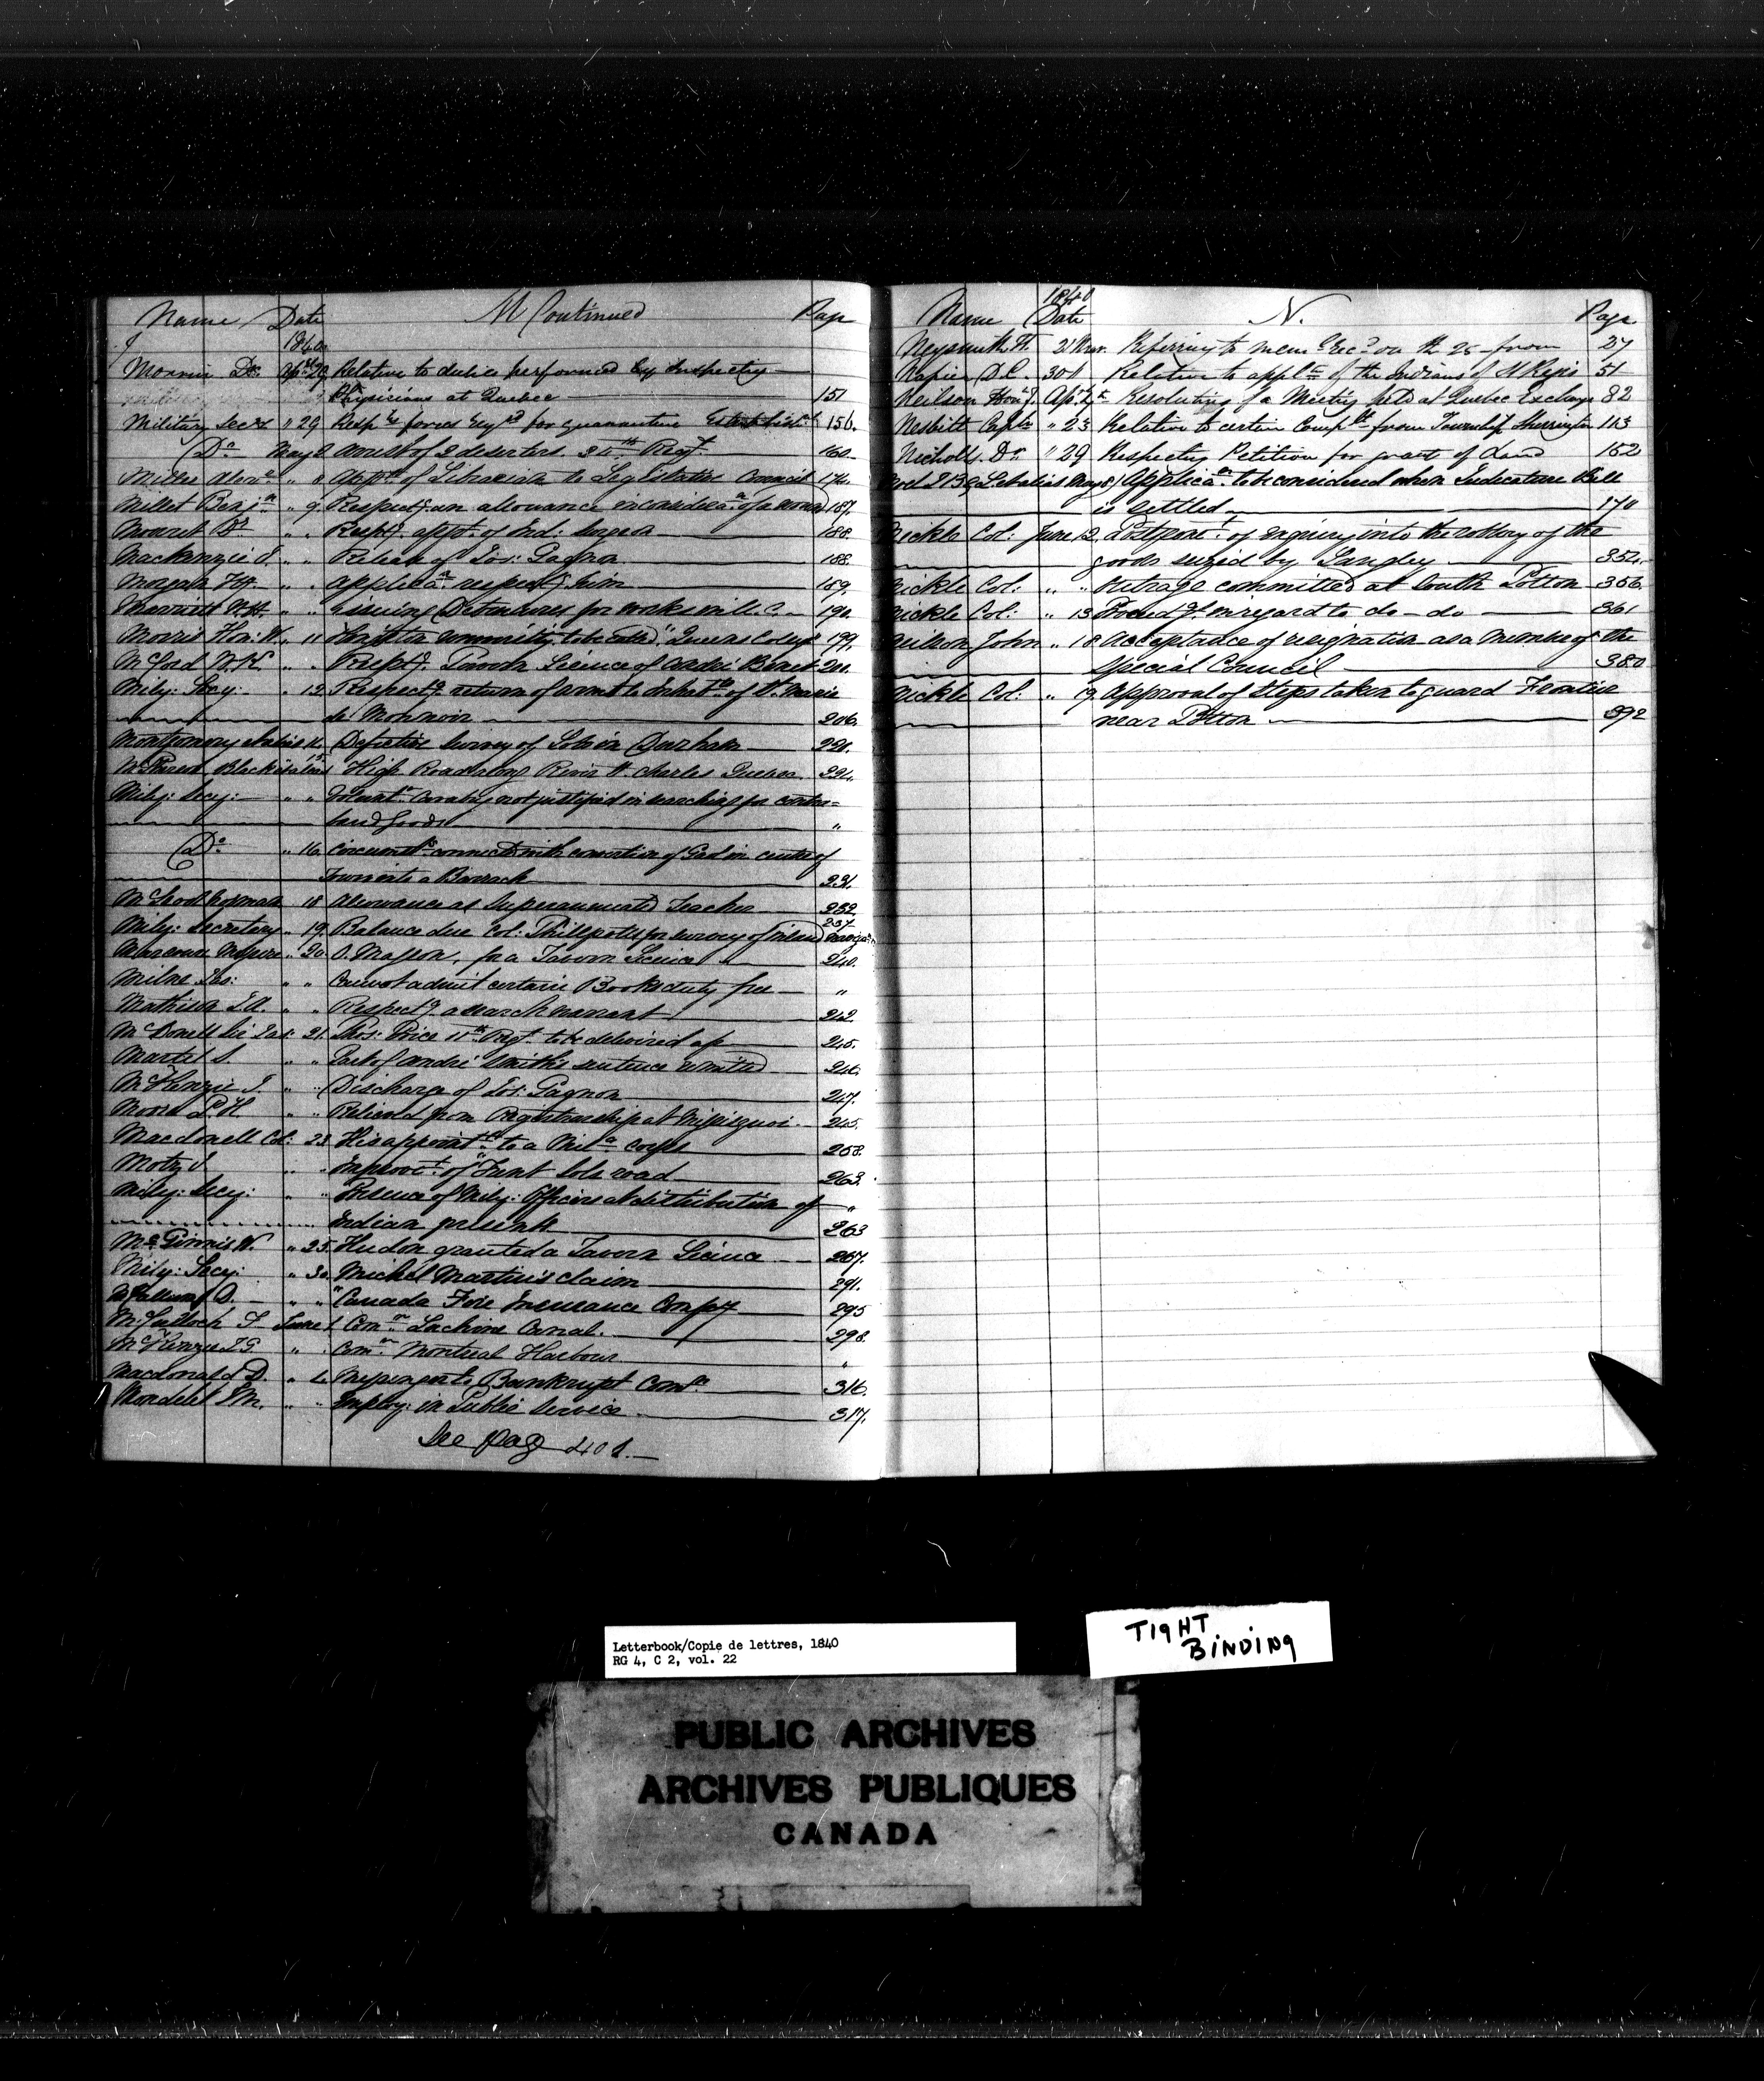 Name Date M Continued Page
1840
Morrin Dr. Apl. 29 Relative to duties performed by Inspecting
Physicians at Quebec 151
Military Secy " 29 Resp. forces reqd for quarantine Establist 156.
Do May 2 Arrest of 2 deserters 34th Regt 160
8 Appt of Librarian to Legislative Council 174
Millet Benjn " 9. Respectg an allowance in considern of a wound 187.
" " Respectg appt of Ind: Surgeon 188.
Mackenzie J. " " Release of Jos: Gagnon 188.
Morgan " " Applican respectg him 189.
" " Issuing Debentures for works in U.C. 190.
Morris Hon: W. " 11 to be called "Queens College" 199.
McCord W.K. " " Respectg Tavern Licence of André Benet
Mily: Secy: " 12. Respectg return of arms to Inhabts of St. Marie
de Monnoir 206.
Montgomery Defective Survey of Lots in Durham
High Road along River St. Charles Quebec
Mily: Secy: " " Volunt. Cavalry not justified in searching for contra-
band goods "
Do " 16. Circumsts connected with conversion of Gaol in centre of
Town into a Barrack 231.
McLeod Norman 18 Allowance as Superannuated Teacher 232
Mily: Secretary " 19. Balance due Col: Phillpotts for survey of inland naviga:n 237
" 20. O. Masson, for a Tavern Licence 240.
Milne Jas: " " Cannot admit certain Books duty free "
Mathison J.A. " " Respectg a search warrant 242
McDonell 21. Thos: Price 11th Regt. to be delivered up 245.
Martel S. " " Part of André Smith's sentence remitted 246.
McKenzie J. " " Discharge of Jos: Gagnon 247.
Moore P.H. " " Relieved from Registrarship at Missisquoi 245.
Macdonell Col: 23 His appointt to a Mila corps 258.
Motz J " " Improvt of road 263.
Mily: Secy: " " Presence of Mily: Officers at distribution of "
Indian presents 263
McGinnis W. " 25. Hudon granted a Tavern Licence 267.
Mily: Secy: " 30. Michel Martin's claim 291.
" " Canada Fire Insurance Compy 295
McCulloch June 1 Comn Lachine Canal. 298.
McKenzie J.G. " " Comn Montreal Harbour "
Macdonald D. " 4 Messenger to Bankrupt Comn 316.
Mondelet " " Employ: in Public Service 317.
See page 401.
1840
Name Date N. Page
Neysmith 21 Mar. Referring to mem. Recd on the 25 from 27
Napier D.C. 30 Relative to appln of the Indians of St Regis 51
Neilson Honl J. Apl. 7 Resolutions of a Meeting held at Quebec Exchange 82
Nesbitt Captn " 23 Relative to certain Complts from Township Sherrington 113
Nicholls Dr " 29 Respecting Petition for grant of Land 152
May 8 Applican to be considered when Judicature Bill
is settled 170
Nickle Col: June 12 Postponet of enquiry into the robbery of the
goods seized by Langley 352.
Nickle Col: " " Outrage committed at South Potton 356.
Nickle Col: " 13 Proceedgs in regard to do - do 361
Neilson John " 18 Acceptance of resignation as a Member of the
Special Council 380
Nickle Col: " 19. Approval of Steps taken to guard Frontier
near Potton 392
Letterbook/Copie de lettres, 1840
RG 4, C 2, vol. 22
TIGHT
BINDING
PUBLIC ARCHIVES
ARCHIVES PUBLIQUES
CANADA